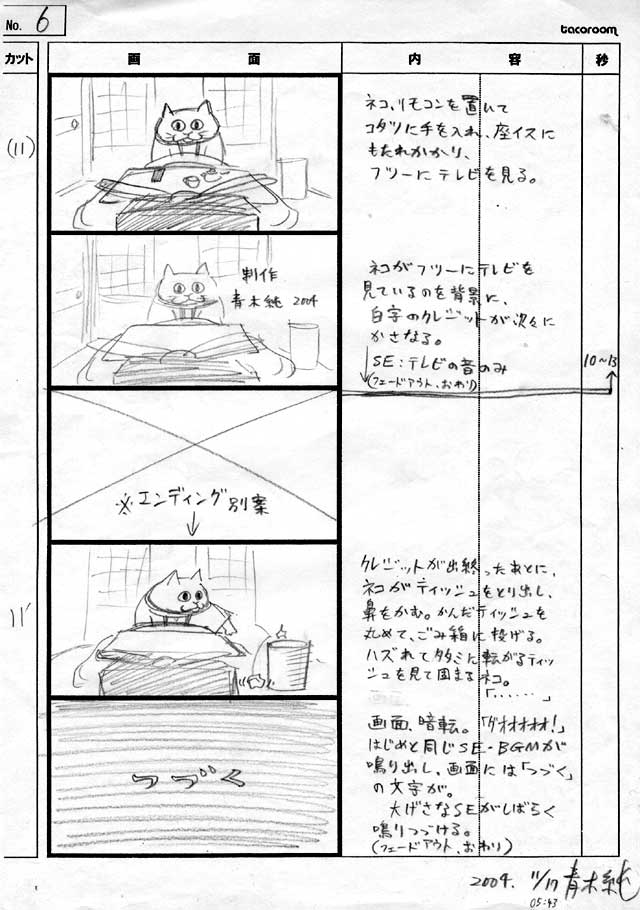 No. 6
tacoroom
カット 画 面 内 容 秒
(11)
ネコ、リモコンを置いて
コタツに手を入れ、座イスに
もたれかかり、
フツーにテレビを見る。
制作
青木純 2004
ネコがフツーにテレビを
見ているのを背景に、
白字のクレジットが次々に
かさなる。
SE:テレビの音のみ
(フェードアウト、おわり)
10~13
※エンディング別案
11'
クレジットが出終ったあとに、
ネコがティッシュをとり出し、
鼻をかむ。かんだティッシュを
丸めて、ごみ箱に投げる。
ハズれてタタミに転がるティッ
シュを見て固まるネコ。
「……」
つづく
画面、暗転。「グオオオオオ!」
はじめと同じSE・BGMが
鳴り出し、画面には「つづく」
の文字が。
大げさなSEがしばらく
鳴りつづける。
(フェードアウト、おわり)
2004. 11/17 青木純
05:43